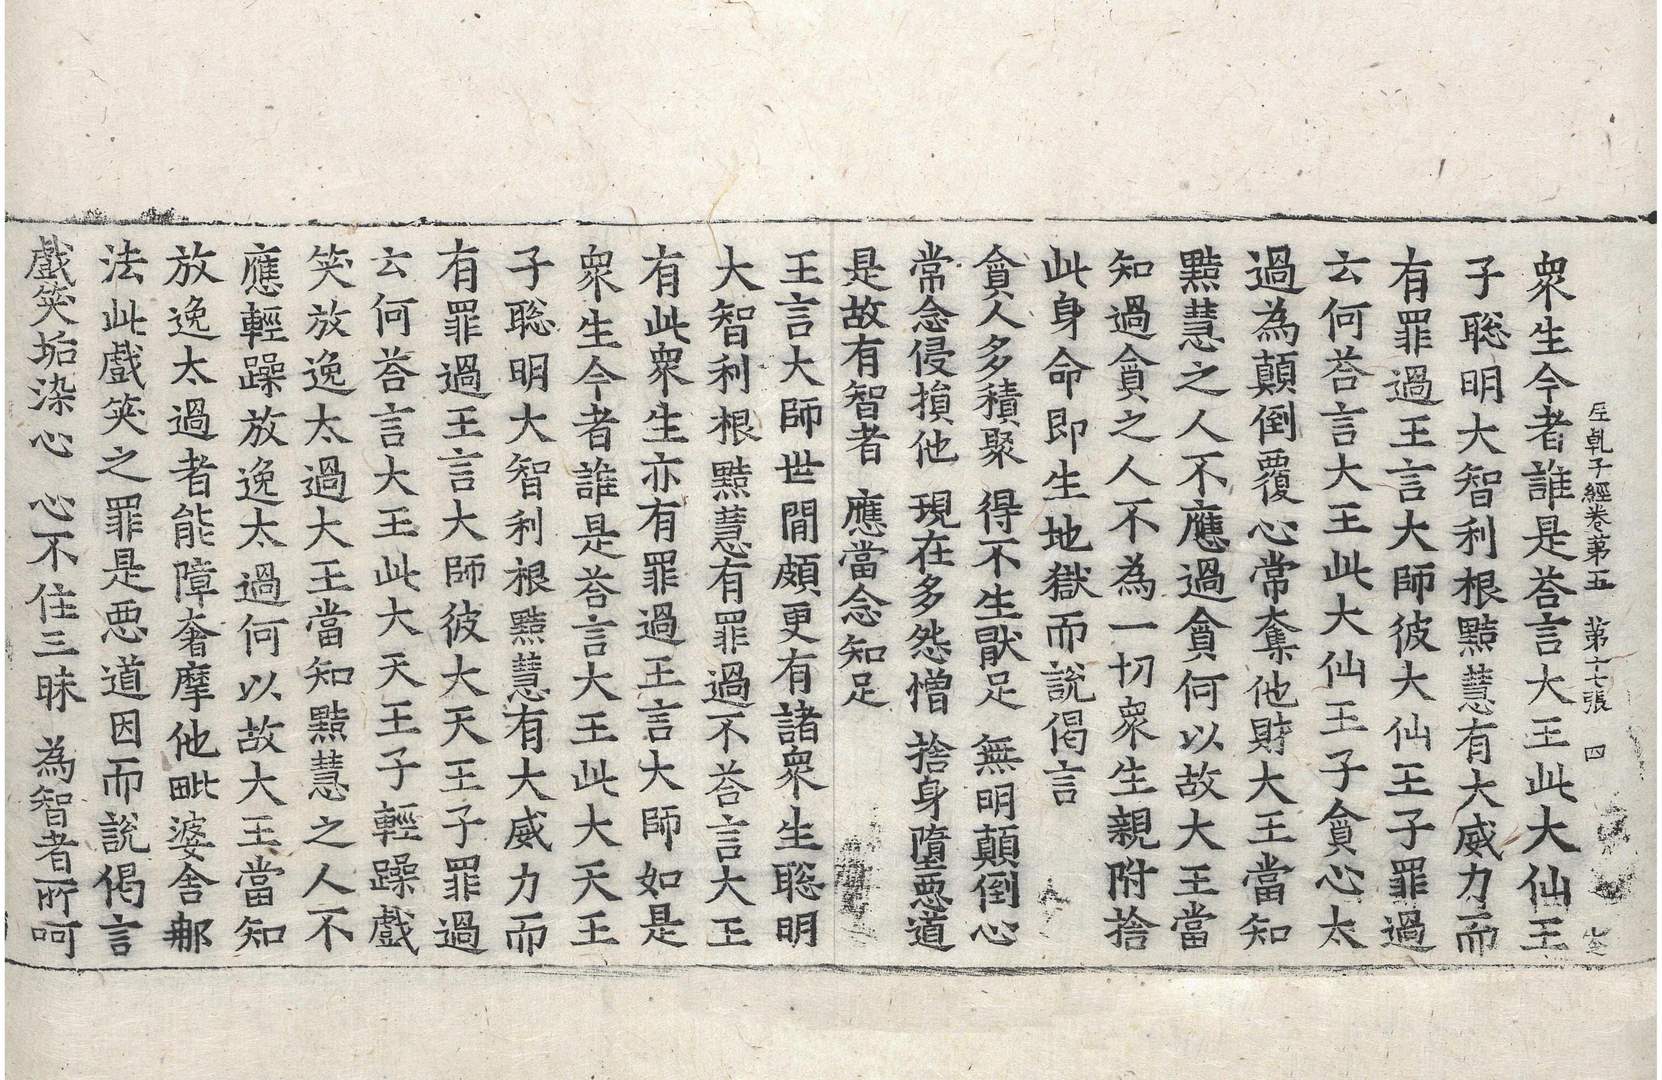 尼乹子經卷第五 第十七張 四
衆生今者誰是荅言大王此大仙王
子聡明大智利根黠慧有大威力而
有罪過王言大師彼大仙王子罪過
云何荅言大王此大仙王子貪心太
過為顛倒覆心常奪他財大王當知
黠慧之人不應過貪何以故大王當
知過貪之人不為一切衆生親附捨
此身命即生地獄而說偈言
貪人多積聚 得不生猒足 無明顛倒心
常念侵損他 現在多怨憎 捨身墮惡道
是故有智者 應當念知足
王言大師世間頗更有諸衆生聡明
大智利根黠慧有罪過不荅言大王
有此衆生亦有罪過王言大師如是
衆生今者誰是荅言大王此大天王
子聡明大智利根黠慧有大威力而
有罪過王言大師彼大天王子罪過
云何荅言大王此大天王子輕躁戲
笑放逸太過大王當知黠慧之人不
應輕躁放逸太過何以故大王當知
放逸太過者能障奢摩他毗婆舍那
法此戲笑之罪是惡道因而說偈言
戲笑垢染心 心不住三昧 為智者所呵